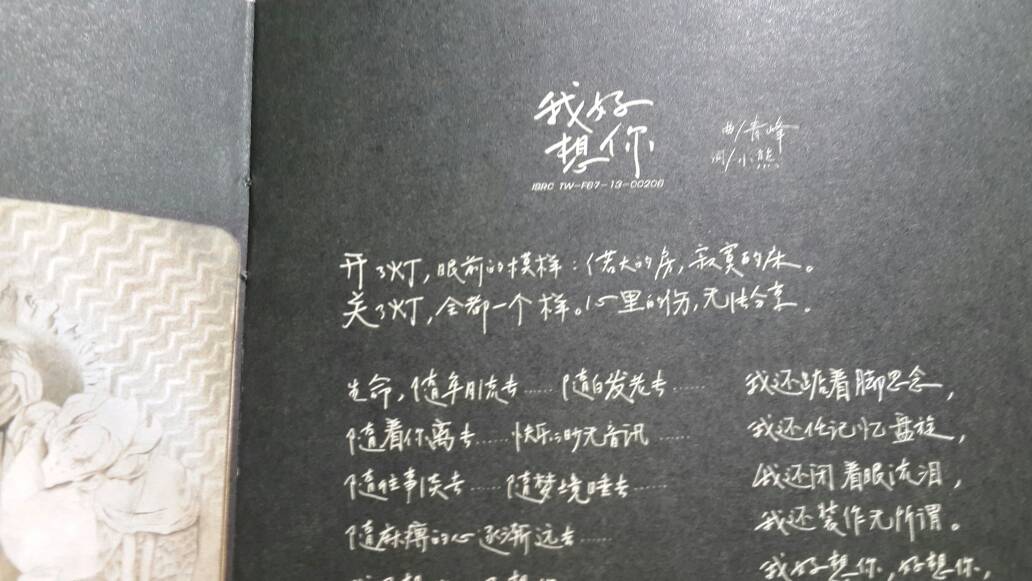 我好
想你
曲/青峰
词/小熊
ISRC TW-F87-13-00206
开了灯,眼前的模样:偌大的房,寂寞的床。
关了灯,全都一个样。心里的伤,无法分享。
生命,随年月流去……随白发老去……
随着你离去……快乐渺无音讯……
随往事淡去……随梦境睡去……
随麻痹的心逐渐远去……
我还踮着脚思念,
我还任记忆盘旋,
我还闭着眼流泪,
我还装作无所谓。
我好想你,好想你,